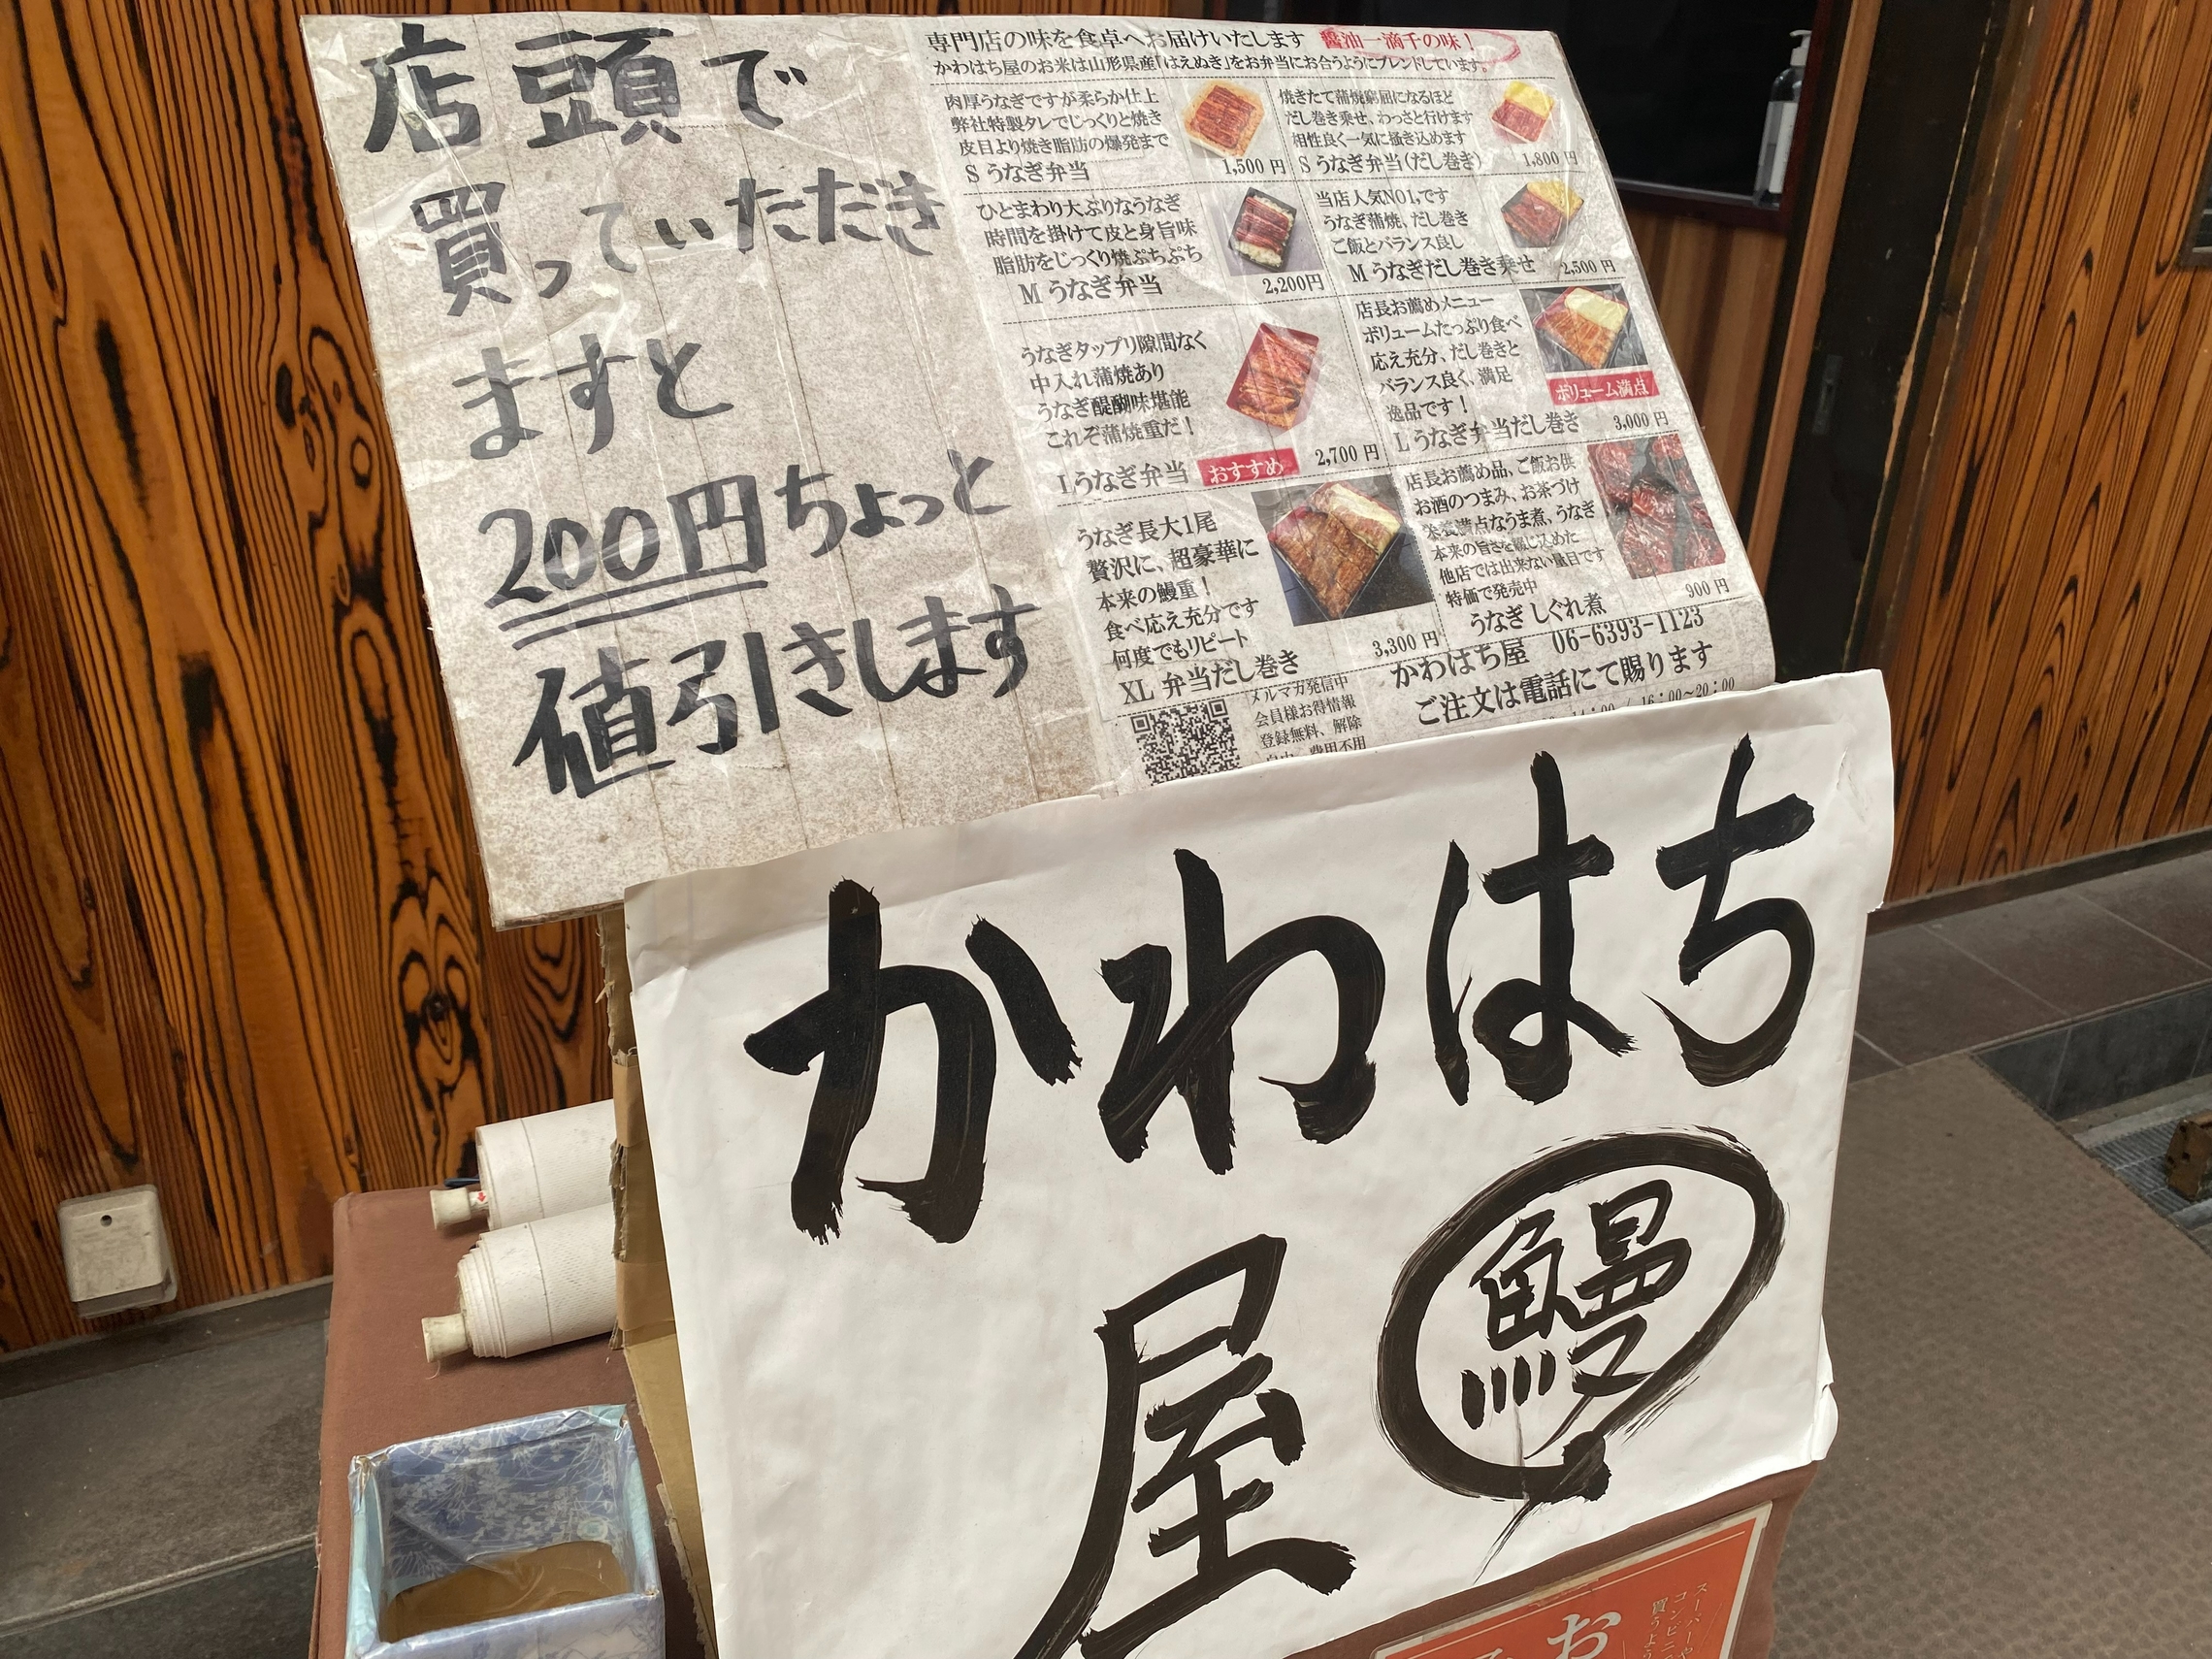 店頭で
買っていただき
ますと
200円ちょっと
値引きします
専門店の味を食卓へお届けいたします 醤油一滴千の味！
かわはち屋のお米は山形県産「はえぬき」をお弁当にお合うようにブレンドしています。
肉厚うなぎですが柔らか仕上
弊社特製タレでじっくりと焼き
皮目より焼き脂肪の爆発まで
S うなぎ弁当
1,500 円
焼きたて蒲焼窮屈になるほど
だし巻き乗せ、わっさと行けます
相性良く一気に掻き込めます
S うなぎ弁当(だし巻き)
1,800 円
ひとまわり大ぶりなうなぎ
時間を掛けて皮と身旨味
脂肪をじっくり焼ぷちぷち
M うなぎ弁当
2,200円
当店人気NO1,です
うなぎ蒲焼、だし巻き
ご飯とバランス良し
M うなぎだし巻き乗せ
2,500 円
うなぎタップリ隙間なく
中入れ蒲焼あり
うなぎ醍醐味堪能
これぞ蒲焼重だ！
Lうなぎ弁当 おすすめ
2,700 円
店長お薦めメニュー
ボリュームたっぷり食べ
応え充分、だし巻きと
バランス良く、満足
逸品です！
ボリューム満点
L うなぎ弁当だし巻き
3,000 円
うなぎ長大1尾
贅沢に、超豪華に
本来の鰻重！
食べ応え充分です
何度でもリピート
XL 弁当だし巻き
3,300 円
店長お薦め品、ご飯お供
お酒のつまみ、お茶づけ
栄養満点なうま煮、うなぎ
本来の旨さを綴じ込めた
他店では出来ない量目です
特価で発売中
うなぎ しぐれ煮
900 円
メルマガ発信中
会員様お得情報
登録無料、解除
自由、費用不用
かわはち屋 06-6393-1123
ご注文は電話にて賜ります
14：00 / 16：00～20：00
かわはち
屋
鰻
スーパーや
コンビニ
買うよう
お